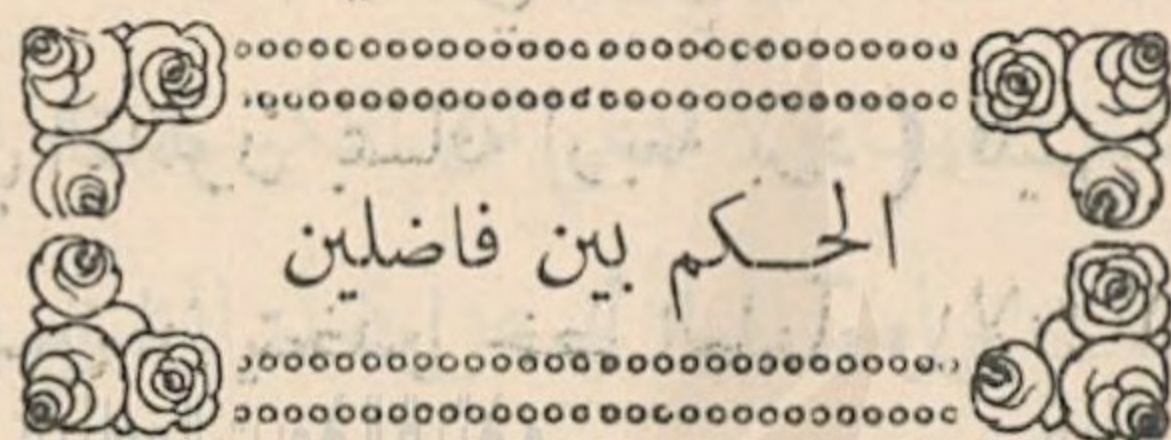 الحكم بين فاضلين